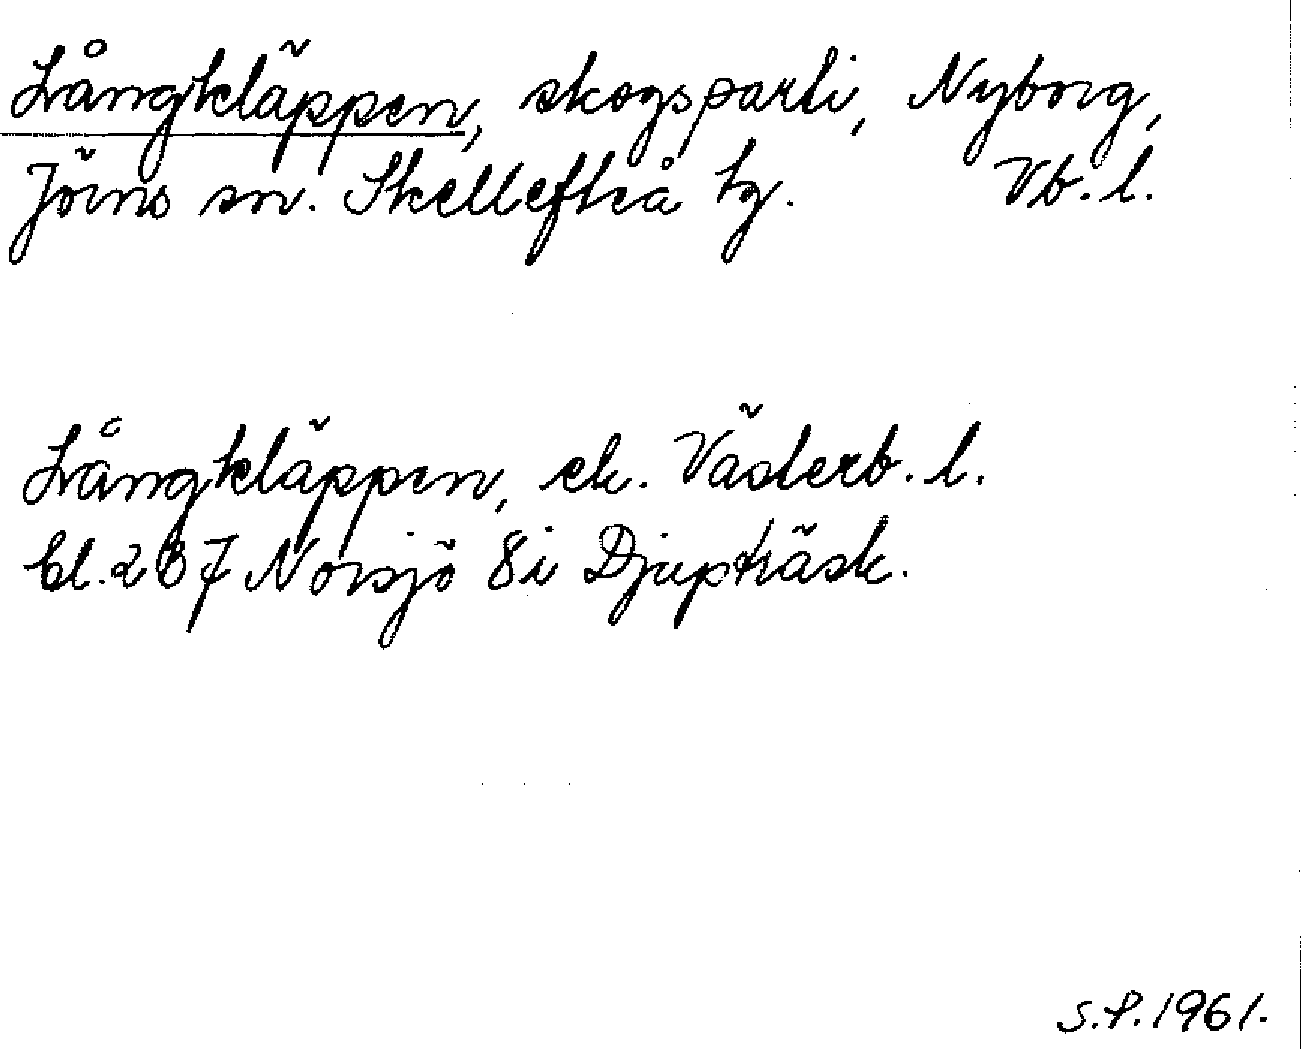 Långkläppen, skogsparti, Nyborg,
Jörns sn. Skellefteå tg. Vb. l.
Långkläppen, ek. Västerb. l.
bl. 267 Norsjö 8i Djupträsk.
S.P. 1961.